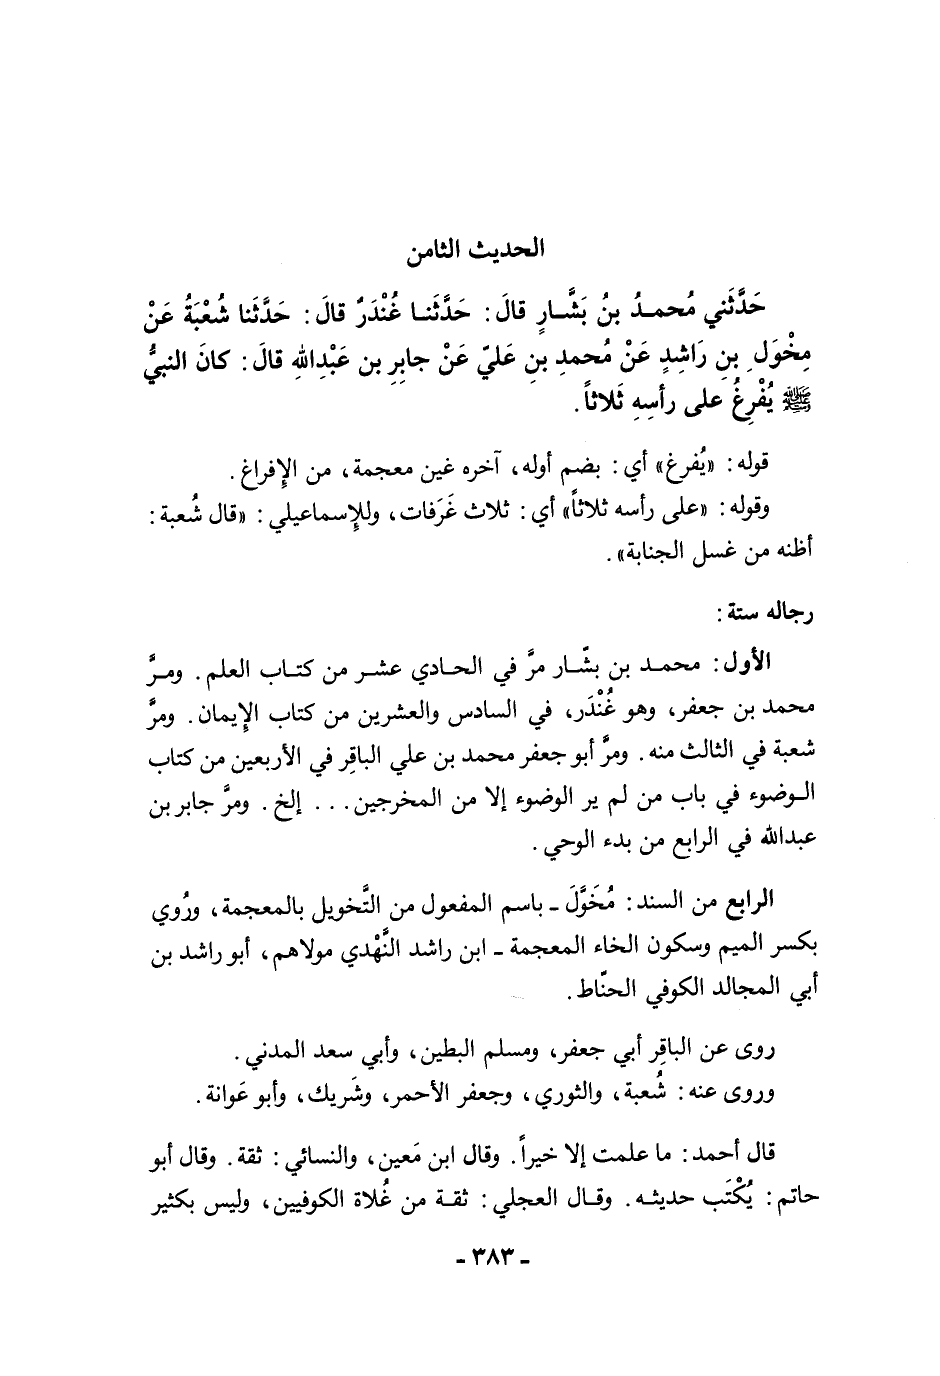 الحديث الثامن
حَدَّثَني مُحمـدُ بنُ بَشَّـارٍ قالَ: حَدَّثَنـا غُنْدَرٌ قالَ: حَدَّثَنا شُعْبَةُ عَنْ
مِخْوَلِ بنِ رَاشِدٍ عَنْ مُحمدِ بنِ عَليّ عَنْ جابِرِ بن عَبْدِاللهِ قالَ: كانَ النبيُّ
ﷺ يُفْرِغُ على رأسِهِ ثَلاثاً.
قوله: «يُفرغ» أي: بضم أوله، آخره غين معجمة، من الإِفراغ.
وقوله: «على رأسه ثلاثاً» أي: ثلاث غَرَفات، وللإِسماعيلي: «قال شُعبة:
أظنه من غسل الجنابة».
رجاله ستة:
الأول: محمـد بن بشّـار مرَّ في الحـادي عشـر من كتـاب العلم. ومـرَّ
محمد بن جعفر، وهو غُنْدَر، في السادس والعشرين من كتاب الإِيمان. ومرَّ
شعبة في الثالث منه. ومرَّ أبو جعفر محمد بن علي الباقِر في الأربعين من كتاب
الـوضوء في باب من لم ير الوضوء إلا من المخرجين... إلخ. ومرَّ جابر بن
عبدالله في الرابع من بدء الوحي.
الرابع من السند: مُخَوَّلَ ـ باسم المفعول من التَّخويل بالمعجمة، ورُوي
بكسر الميم وسكون الخاء المعجمة ـ ابن راشد النَّهْدي مولاهم، أبو راشد بن
أبي المجالد الكوفي الحنّاط.
روى عن الباقِر أبي جعفر، ومسلم البطين، وأبي سعد المدني.
وروى عنه: شُعبة، والثوري، وجعفر الأحمر، وشَريك، وأبو عَوانة.
قال أحمد: ما علمت إلا خيراً. وقال ابن مَعين، والنسائي: ثقة. وقال أبو
حاتم: يُكْتَب حديثـه. وقـال العجلي: ثقـة من غُلاة الكوفيين، وليس بكثير
ـ ٣٨٣ ـ